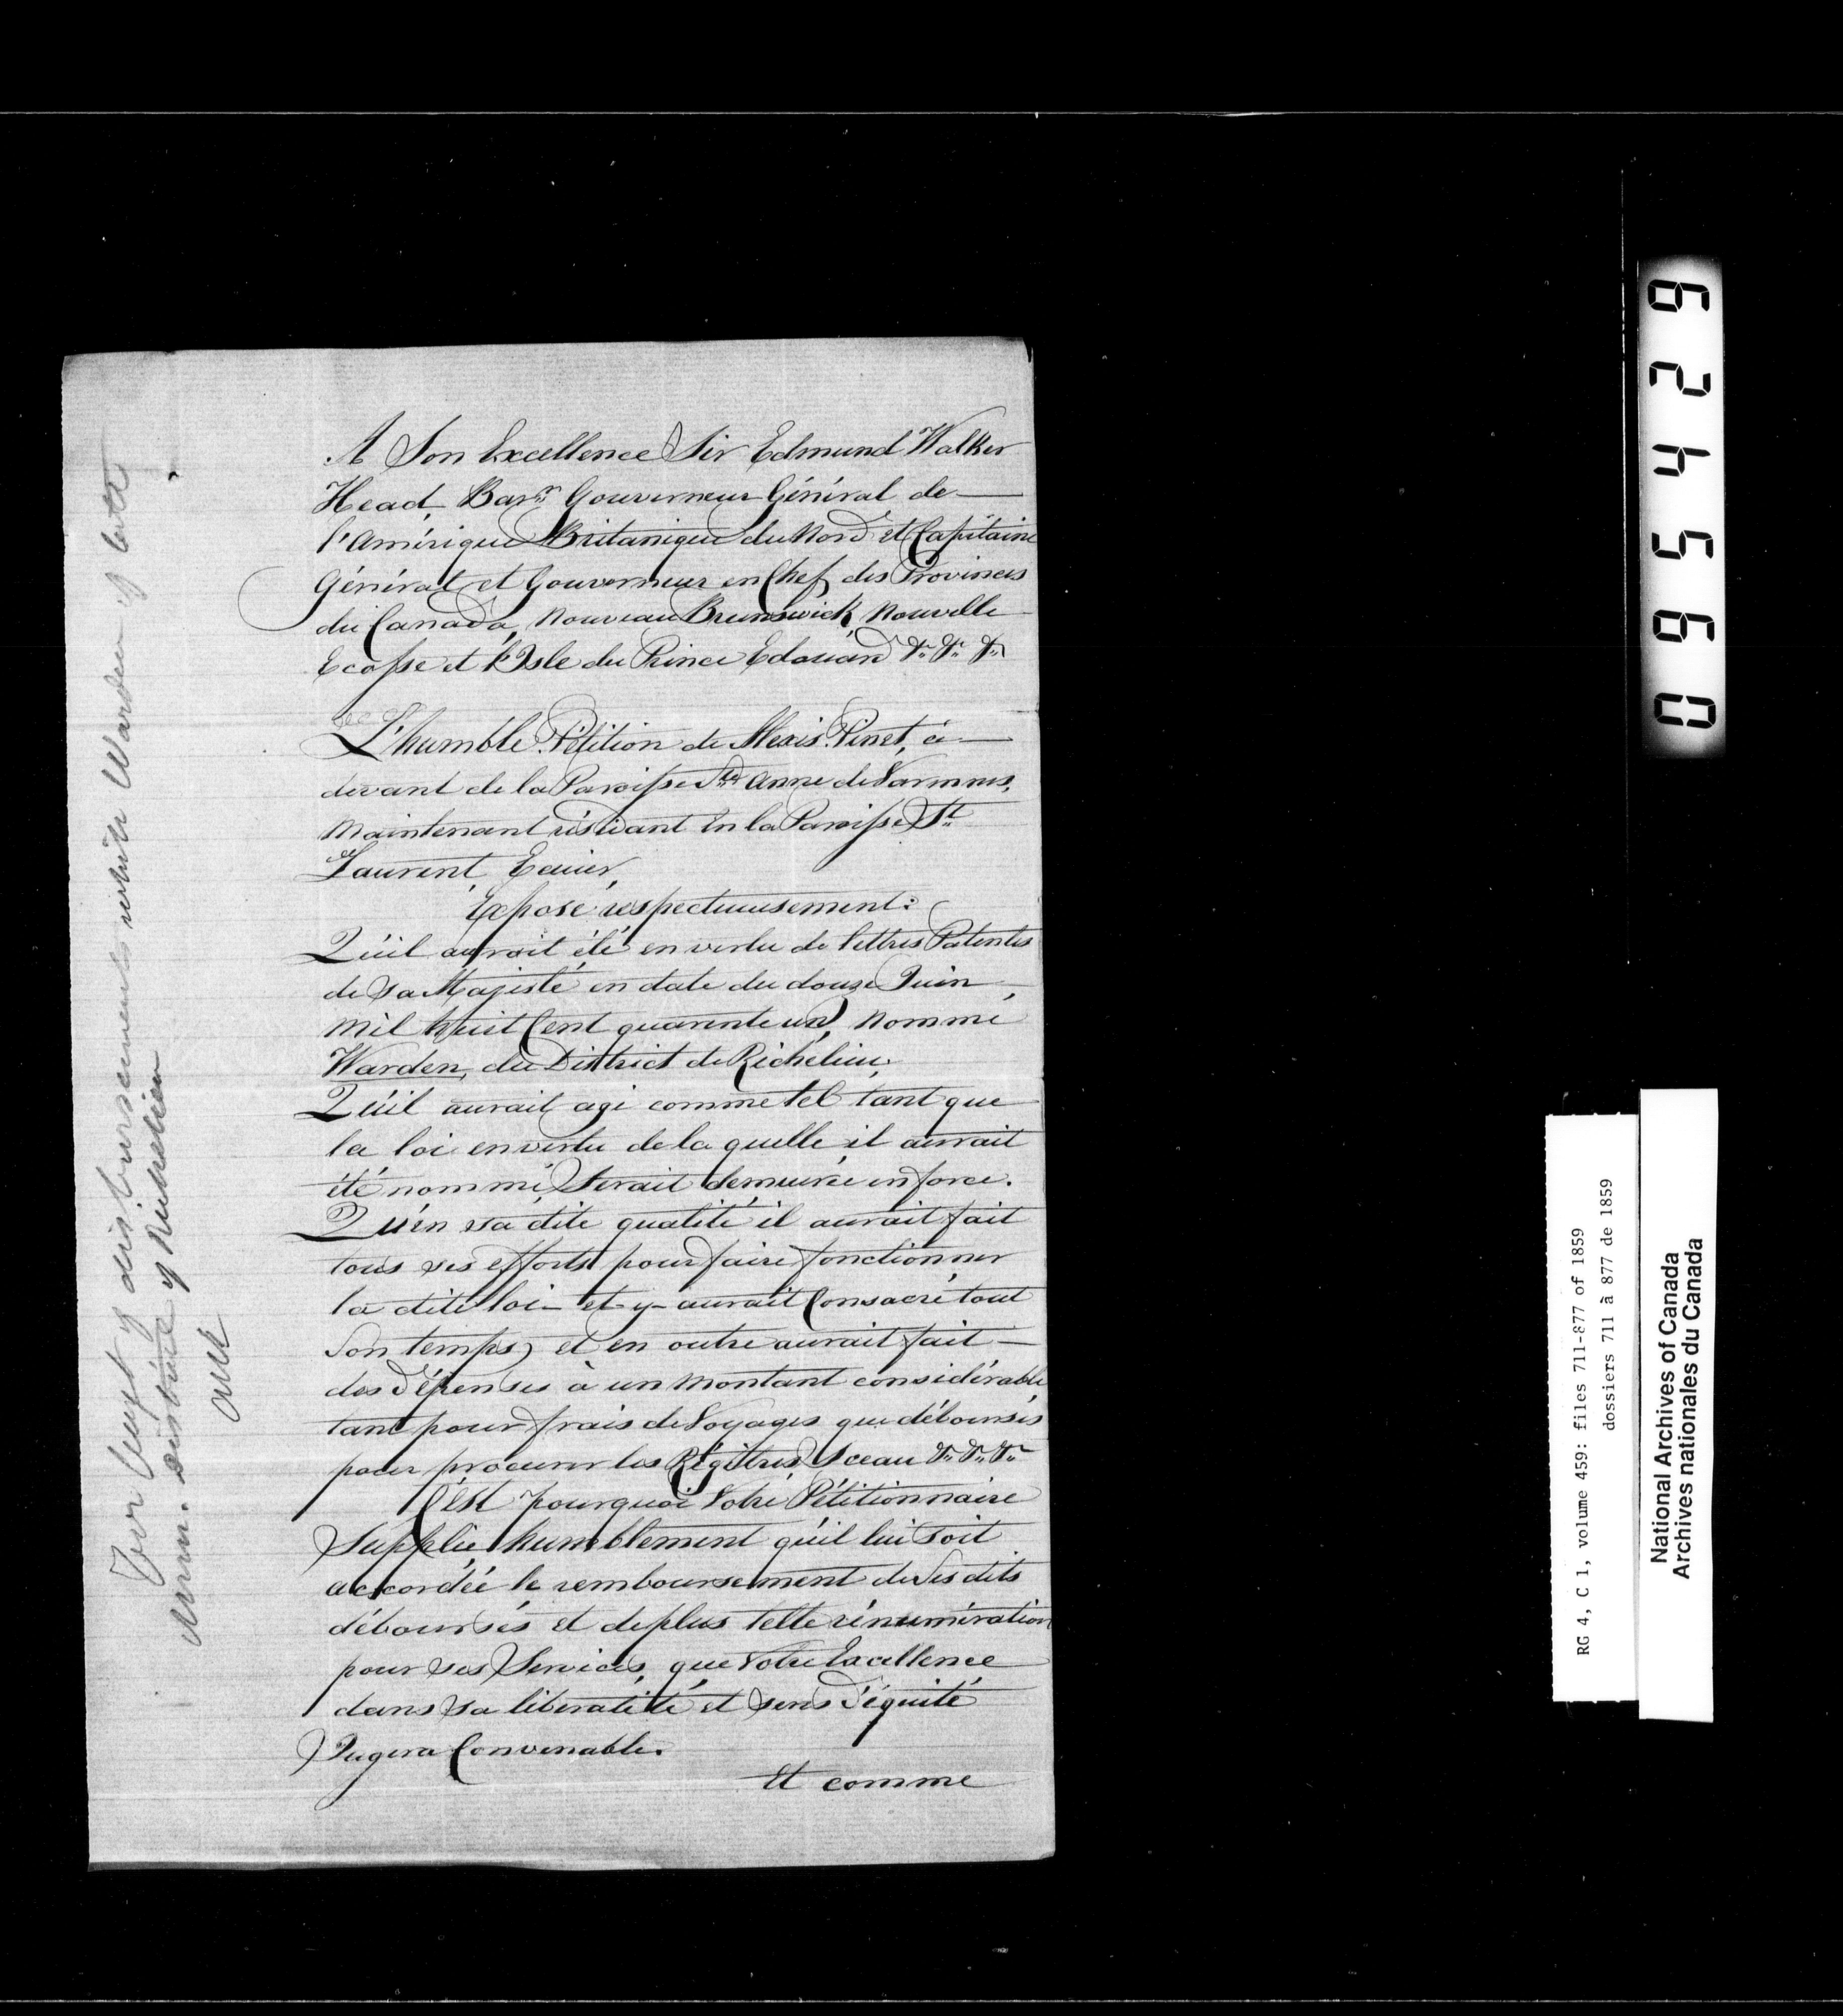 A Son Excellence Sir Edmund Walker
Head, Bart. Gouverneur Général de
l'Amérique Britanique du Nord et Capitaine
Général et Gouverneur en Chef des Provinces
du Canada, Nouveau Brunswick, Nouvelle
Ecosse et l'Isle du Prince Edouard &c. &c. &c.
L'humble Pétition de Alexis Pinet, ci
devant de la Paroisse Ste Anne de Varennes,
Maintenant résidant en la Paroisse St
Laurent, Ecuier,
Expose respectueusement:
Qu'il auroit été en vertu de lettres Patentes
de Sa Majesté en date du douze Juin
Mil huit Cent quarente un, Nommé
Warden, du District de Richelieu,
Qu'il aurait agi comme tel tant que
la loi en vertu de la quelle il aurait
été nommé, Serait demeurée en force.
Qu'en sa dite qualité il aurait fait
tous ses efforts pour faire fonctionner
la dite loi et y aurait Consacré tout
Son temps, et en outre aurait fait
des dépenses à un Montant considérable
tant pour frais de Voyages que déboursés
pour procurer les Régitres, Sceau &c. &c. &c.
C'est pourquoi Votre Pétitionnaire
Supplie humblement qu'il lui Soit
accordée le remboursement de Ses dits
déboursés et de plus telle rénumération
pour ses Services, que Votre Excellence
dans sa libéralité et Sens d'équité
Jugera Convenable.
Et comme
For &disbursements while Warden of late
Mun. district of Richelieu
RG 4, C 1, volume 459: files 711-877 of 1859
dossiers 711 à 877 de 1859
National Archives of Canada
Archives nationales du Canada
064529